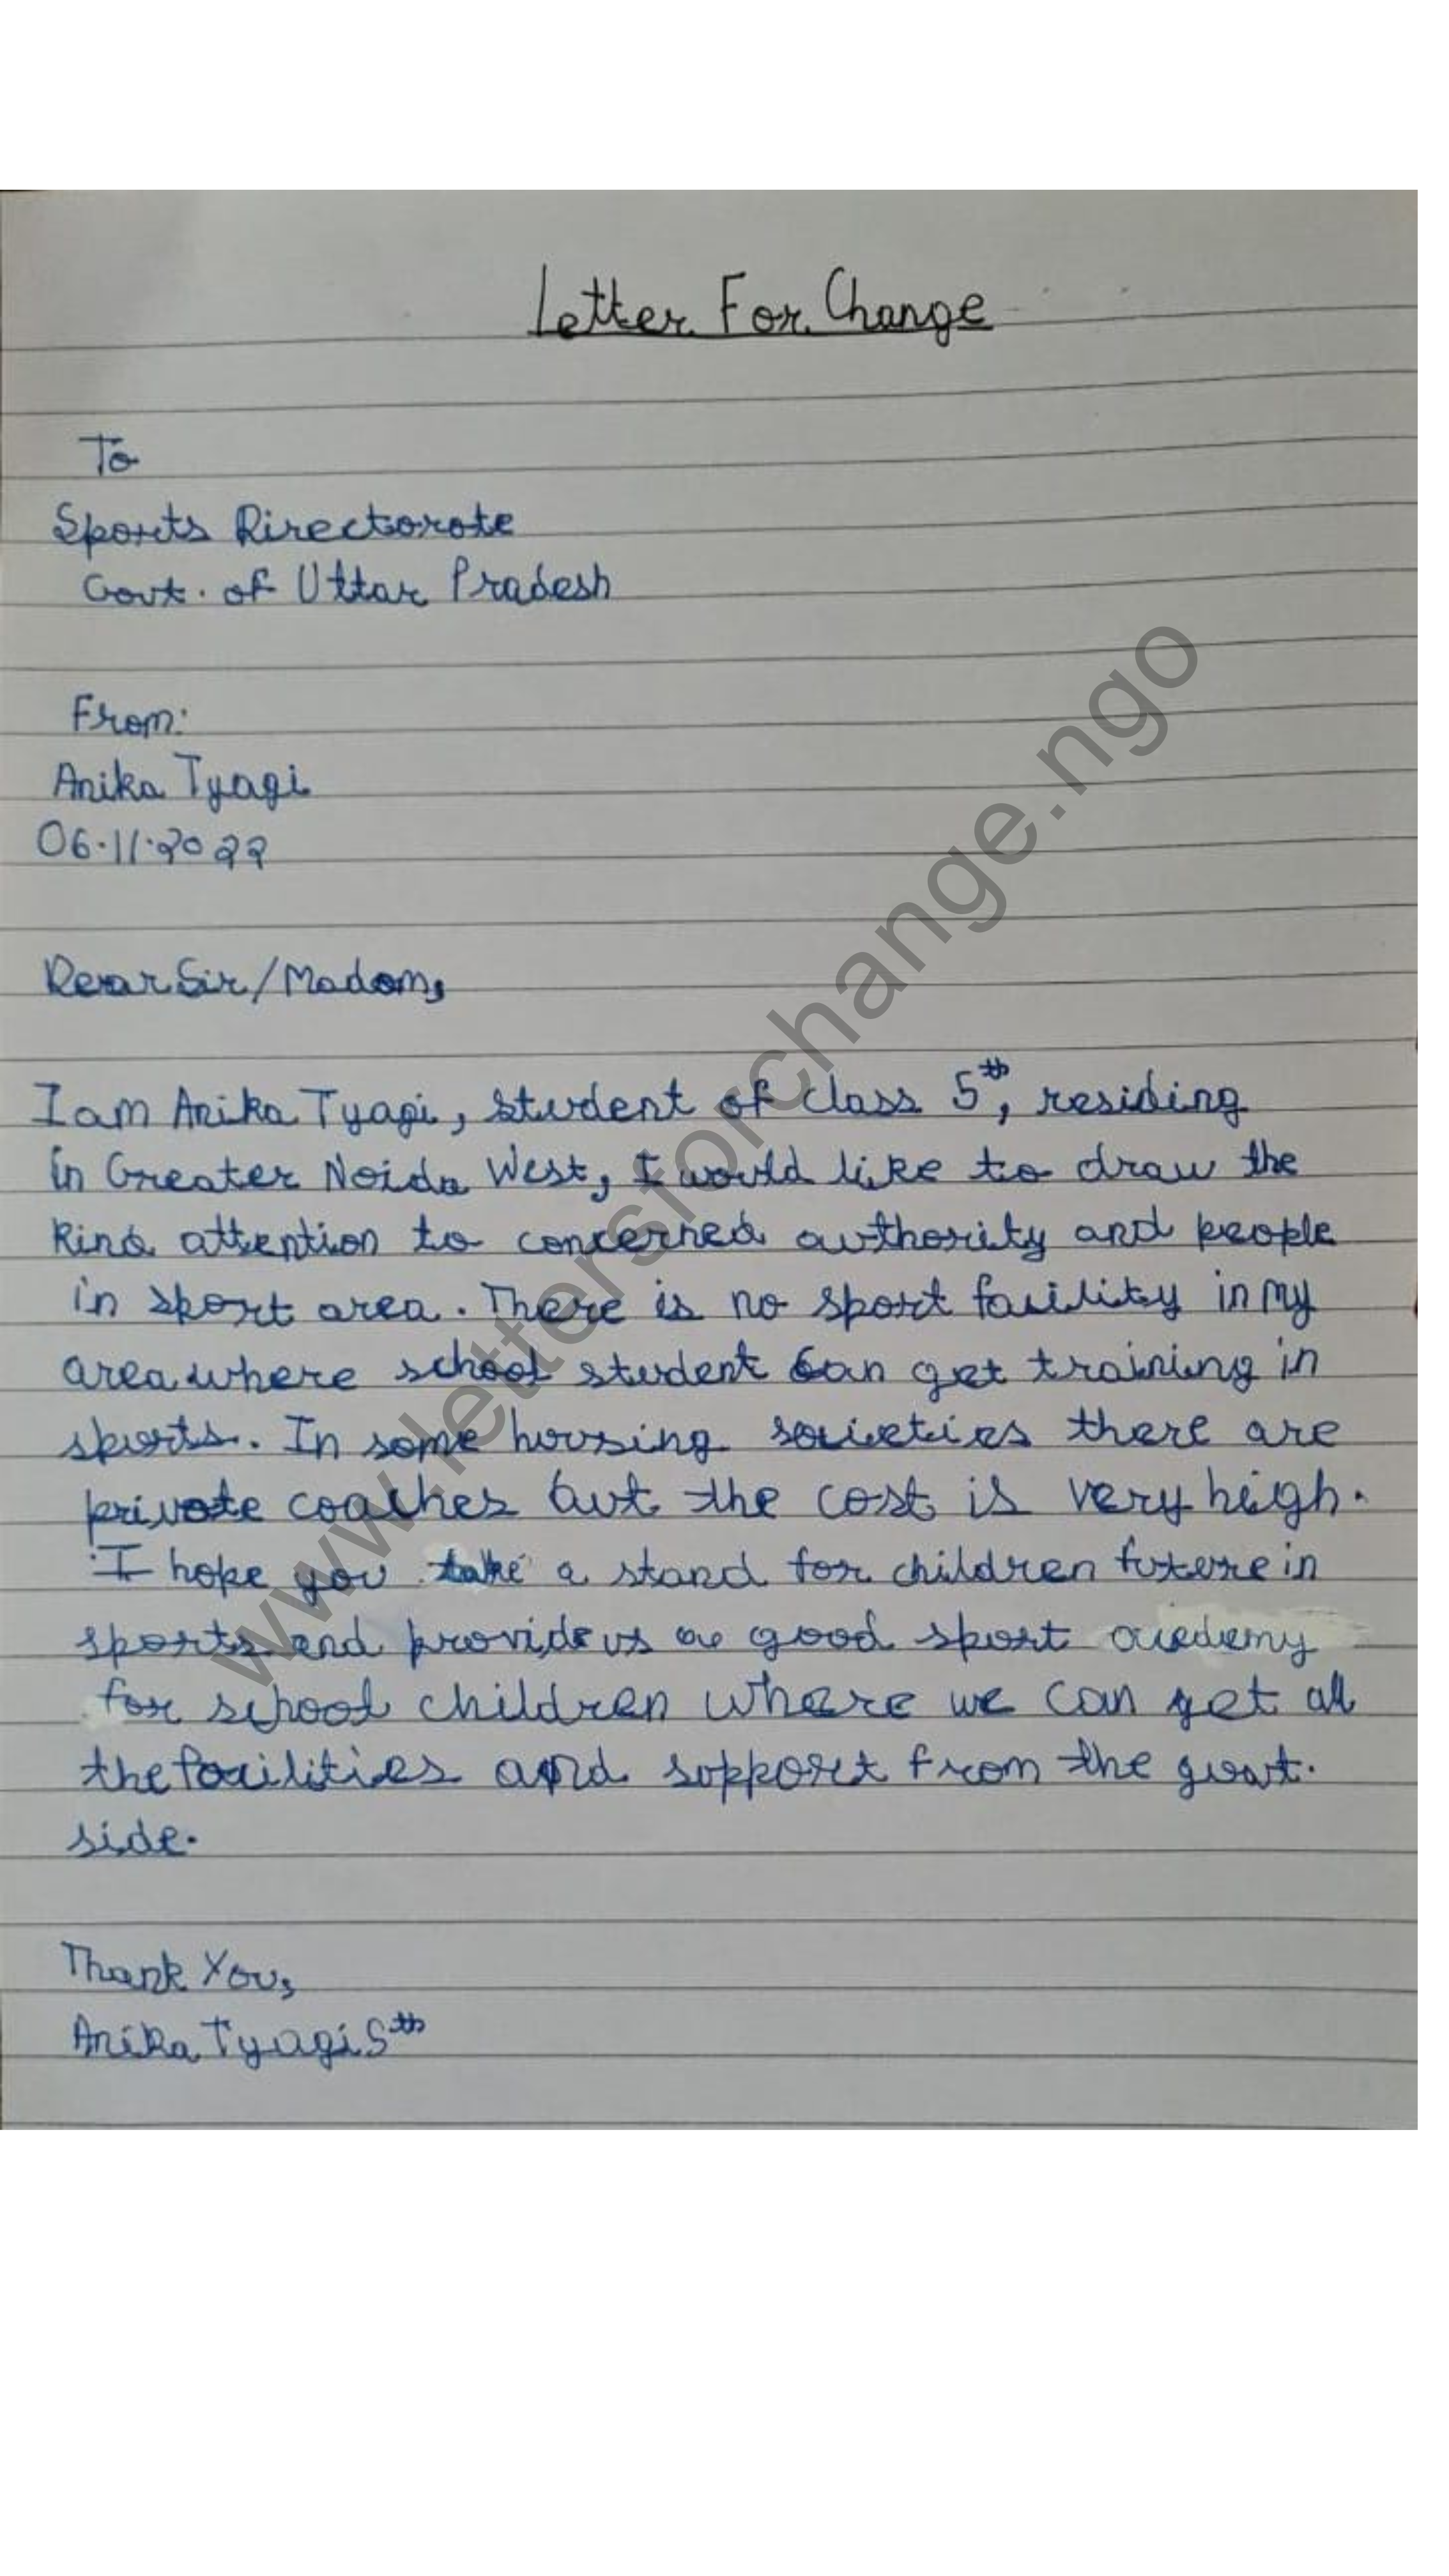 Letter For Change
To
Sports Directorote
Govt. of Uttar Pradesh
From:
Anika Tyagi
06.11.2022
Dear Sir/Madom,
I am Anika Tyagi, student of class 5th, residing
in Greater Noida West, I would like to draw the
kind attention to concerned authority and people
in sport area. There is no sport facility in my
area where school student can get training in
sports. In some housing societies there are
private coaches but the cost is very heigh.
I hope you take a stand for children future in
sports and provide us a good sport acedemy
for school children where we can get all
the facilities and support from the govt.
side.
Thank You,
Anika Tyagi 5th
www.lettersforchange.ngo